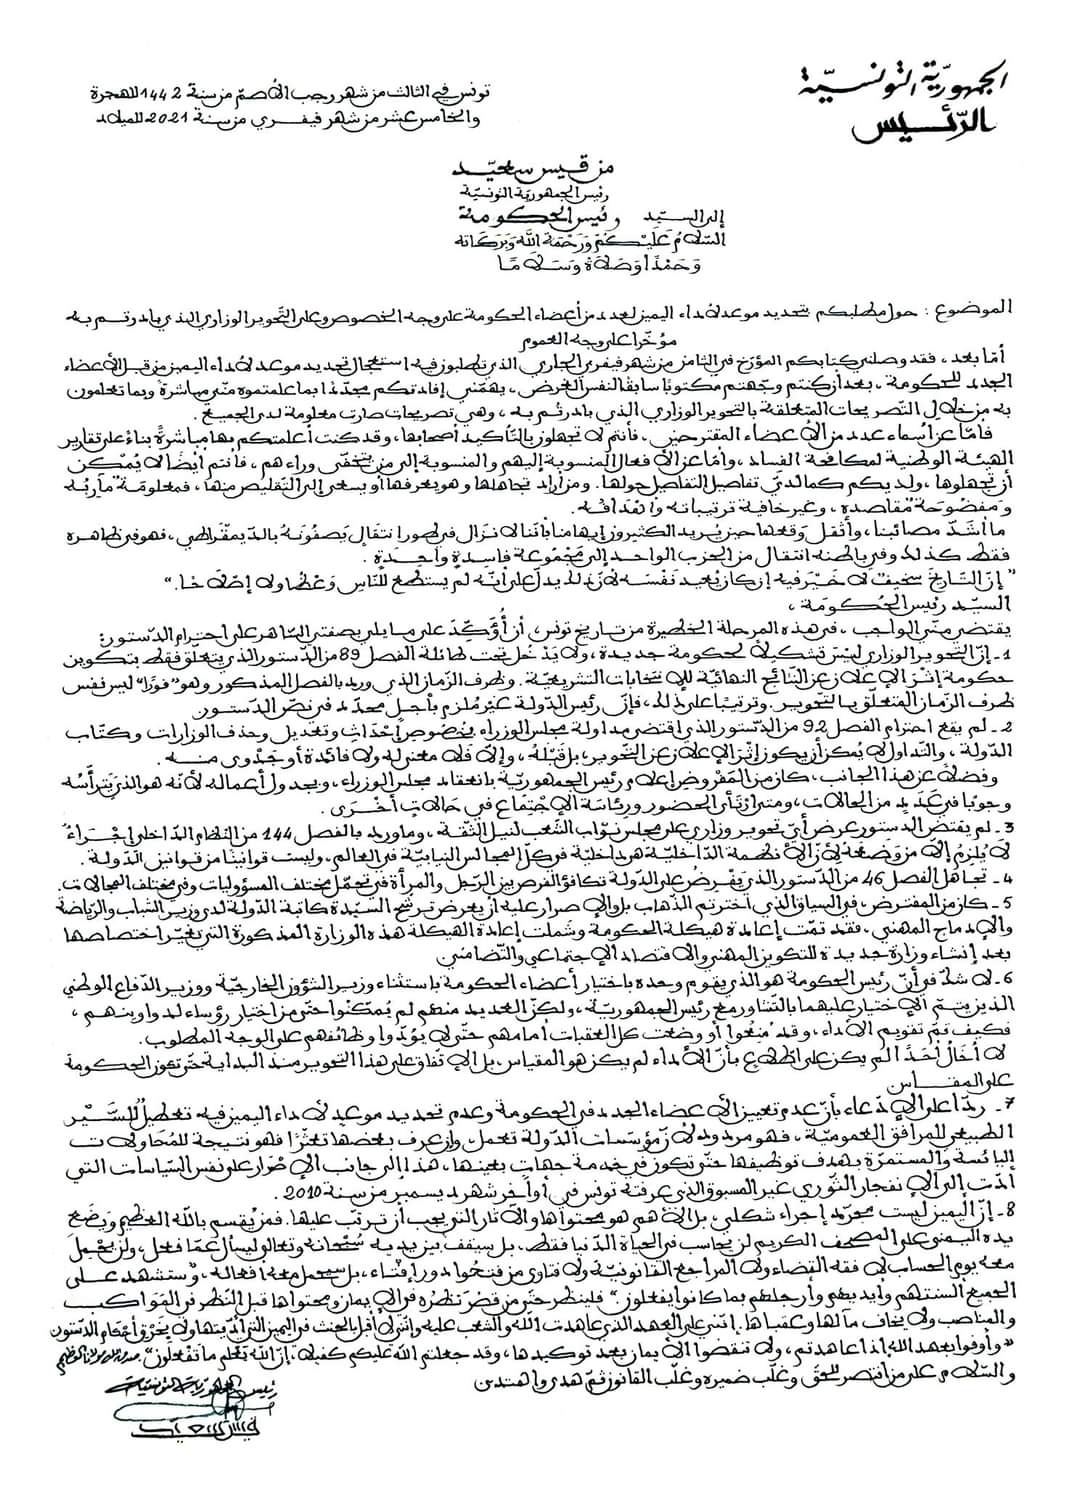 الجمهوريّة التونسيّة
الرّئيس
تونس في الثالث من شهر رجب الأصمّ من سنة 1442 للهجرة
والخامس عشر من شهر فيفري من سنة 2021 للميلاد
من قيس سعيّد
رئيس الجمهوريّة التونسيّة
إلى السيّد رئيس الحكومة
السّلامُ عَلَيْكُمْ وَرَحْمَةُ اللَّه وَبَرَكَاتُه
وَحَمْدًا وَصَلَاةً وَسَلَامًا
الموضوع : حول مطلبكم تحديد موعد لأداء اليمين لعدد من أعضاء الحكومة على وجه الخصوص وعلى التّحوير الوزاري الذي بادرتم به
مؤخّرا على وجه العموم
أمّا بعد، فقد وصلني كتابكم المؤرّخ في الثامن من شهر فيفري الجاري الذي تطلبون فيه استعجال تحديد موعد لأداء اليمين من قبل الأعضاء
الجدد للحكومة ، بعد أن كنتم وجّهتم مكتوبًا سابقًا لنفس الغرض، يهمّني إفادتكم مجدّدًا بما علمتموه منّي مباشرة وبما تعلمون
به من خلال التصريحات المتعلقة بالتحوير الوزاري الذي بادرتم به ، وهي تصريحات صارت معلومة لدى الجميع .
فأمّا عن أسماء عدد من الأعضاء المقترحين ، فأنتم لا تجهلون بالتّأكيد أصحابها، وقد كنت أعلمتكم بها مباشرةً بناءً على تقارير
الهيئة الوطنية لمكافحة الفساد ، وأمّا عن الأفعال المنسوبة إليهم والمنسوبة إلى من يتخفّى وراءهم ، فأنتم أيضًا لا يُمْكن
أن تجهلوها ، ولديكم كما لديّ تفاصيل التفاصيل حولها. ومن أراد تجاهلها وهو يعرفها أو يسعى إلى التّقليص منها ، فمعلومَة مآربُه
وَمَفْضُوحَة مَقاصده ، وغير خافية ترتيباته وأهدافُه.
ما أشدّ مصائبنا، وأثقل وَقعها حين يُريد الكثيرون إيهامنا بأنّنا لا نزال في طور انتقال يَصفُونَهُ بالديمقراطي ، فهو في ظاهره
فقط كذلك وفي باطنه انتقال من الحزب الواحد إلى مَجْمُوعة فاسدةٍ واحِدةٍ.
"إنّ التّاريخ سخيفٌ لا خَيْرَ فيه إن كان يُعيد نَفْسَه لأنّ ذلك يدلّ على أنّه لم يستطع للنّاس وَعْظا ولا إصْلاحا."
السيّد رئيس الحُكُومَة ،
يقتضي منّي الواجب ، في هذه المرحلة الخطيرة من تاريخ تونس، أن أُؤَكّدَ على ما يلي بصفتي السّاهر على احترام الدّستور:
1- إنّ التحوير الوزاري ليْسَ تشكيلًا لحكومة جديدة، ولا يَدْخُل تحت طائلة الفصل 89 من الدّستور الذي يتعلّق فقط بتكوين
حكومة إثر الإعلان عن النّتائج النهائيّة للانتخابات التشريعيّة. وظرف الزّمان الذي ورد بالفصل المذكور وهو "فورًا" ليس نفس
ظرف الزّمان المتعلّق بالتحوير. وترتيبا على ذلك، فإنّ رئيس الدّولة غيرُ مُلزم بأجل محدّد في نصّ الدستور
2- لم يقع احترام الفصل 92 من الدّستور الذي اقتضى مداولة مجلس الوزراء بخصوص إحْدَاث وتعديل وحذف الوزارات وكتّاب
الدّولة ، والتّداول لا يُمكن أن يكون إثْر الإعلان عن التّحوير، بل قَبْلهُ ، وإلّا فلا معنى له ولا فائدة أو جَدْوى منه .
وفضلًا عن هذا الجانب، كان من المفروض إعلام رئيس الجمهوريّة بانعقاد مجلس الوزراء ، وبجدول أعماله لأنه هو الذي يَتَرَأَّسُه
وجوبًا في عَدِيدٍ من الحالات ، ومتى ارتأى الحضور ورئاسة الاجْتِمَاع في حالاتٍ أخْرَى .
3- لم يقتض الدستور عرض أيّ تحوير وزاري على مجلس نوّاب الشعب لنيل الثقة ، وما ورد بالفصل 144 من النّظام الدّاخلي إجْرَاءٌ
لا يُلزمُ إلّا من وَضعَهُ لأنّ الأنظمة الدّاخليّة هي داخليّة في كلّ المجالس النيابيّة في العالم، وليست قوانينًا من قوانين الدّولة .
4- تجاهل الفصل 46 من الدّستور الذي يَفْرضُ على الدّولة تكافؤ الفرص بين الرّجل والمرأة في تحمّل مختلف المسؤوليات وفي مختلف المجالات.
5- كان من المفترض، في السياق الذي اخترتم الذّهاب بل والإصرار عليه أن يعرض ترشّح السيّدة كاتبة الدّولة لدى وزير الشباب والرّياضة
والإدماج المهني، فقد تمّت إعادة هيكلة الحكومة وشملت إعادة الهيكلة هذه الوزارة المذكورة التي تغيّر اختصاصها
بعد إنشاء وزارة جديدة للتكوين المهني والاقتصاد الاجتماعي والتّضامني
6- لا شكّ في أنّ رئيس الحكومة هو الذي يقوم وحده باختيار أعضاء الحكومة باستثناء وزير الشّؤون الخارجيّة ووزير الدّفاع الوطني
الذين يتمّ الاختيار عليهما بالتّشاور مع رئيس الجمهوريّة ، ولكنّ العديد منهم لم يُمكّنُوا حتّى من اختيار رؤساء لدواوينهم ،
فكيف تمّ تقويم الأداء، وقد مُنِعُوا أو وضعت كلّ العقبات أمامهم حتّى لا يُؤدّوا وظائفهم على الوجه المطلوب.
لا أخَالُ أحَدًا لم يكن على اطّلاع بأنّ الأداء لم يكن هو المقياس، بل الاتّفاق على هذا التحوير منذ البداية حتّى تكون الحكومة
على المقاس
7- ردّا على الادّعاء بأنّ عدم تعيين الأعضاء الجدد في الحكومة وعدم تحديد موعد لأداء اليمين فيه تعطيلٌ للسَّيْر
الطّبيعي للمرافق العموميّة ، فهو مردود لأنّ مؤسّسات الدّولة تعمل، وإن عرف بعضها تعثّرًا فهو نتيجة للمُحَاولات
اليائسة والمستمرّة بهدف توظيفها حتّى تكون في خدمة جهاتٍ بعينها ، هذا إلى جانب الإصْرار على نفس السّياسات التي
أدّت إلى الانفجار الثّوري غير المسبوق الذي عرفته تونس في أواخر شهر ديسمبر من سنة 2010.
8- إنّ اليمين ليست مجرّد إجراء شكلي ، بل الأهم هو محتواها والآثار التي يجب أن تترتّب عليها. فمن يُقسم باللّه العظيم وَيَضَعُ
يده اليمنى على المصحف الكريم لن يُحاسب في الحياة الدّنيا فقط ، بل سيقف بين يديه سُبْحَانه وتعالى ليسأل عمّا فعل، ولن يحْمِلَ
معه يوم الحساب لا فقه القضاء ولا المراجع القانونيّة ولا فتاوى من فتحُوا دور إفْتاء ، بل سيحمل معه أفعاله ، وستشهد على
الجميع ألسنتهم وأيديهم وأرجلهم بما كانوا يفعلون" فلينظر حتّى من قصر نظرُه في الأيمان ومحتواها قبل النّظر في المَوَاكب
والمناصب ولا يخاف مآلها وعقباها. إنّني على العهد الذي عاهدت اللّه والشّعب عليه وإنّني لا أقبل بالحنث في اليمين التي أدّيتها ولا بخرق أحكام الدّستور
"وأوفوا بعهد اللّه إذا عاهدتم، ولا تنقضوا الأيمان بعد توكيدها ، وقد جعلتم اللّه عليكم كفيلا، إنّ اللّه يعلم ما تفعلون" صدق اللّه مولانا العظيم
والسّلام على من انتصر للحقّ وغلّب ضميره وغلّب القانون ثمّ هُدى واهتدى
رئيس الجمهوريّة التونسيّة
قيس سعيّد